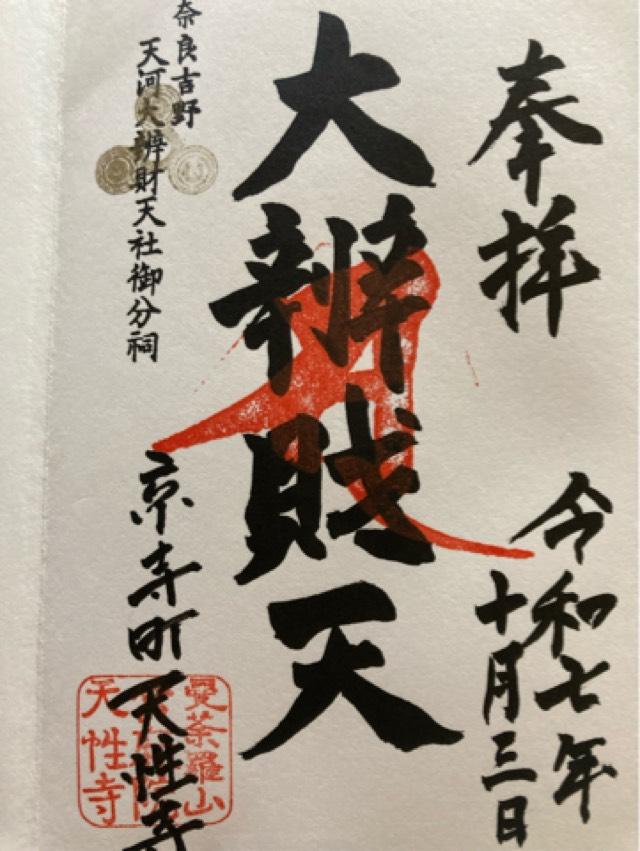 奉拝
令和七年
十月三日
大辨財天
奈良吉野
天河大辨財天社御分祠
京寺町天性寺
曼荼羅山
天性寺